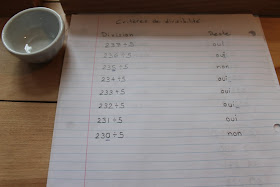 Critères de divisibilité
Division Reste
237÷5 oui
236÷5 oui
235÷5 non
234÷5 oui
233÷5 oui
232÷5 oui
231÷5 oui
230÷5 non